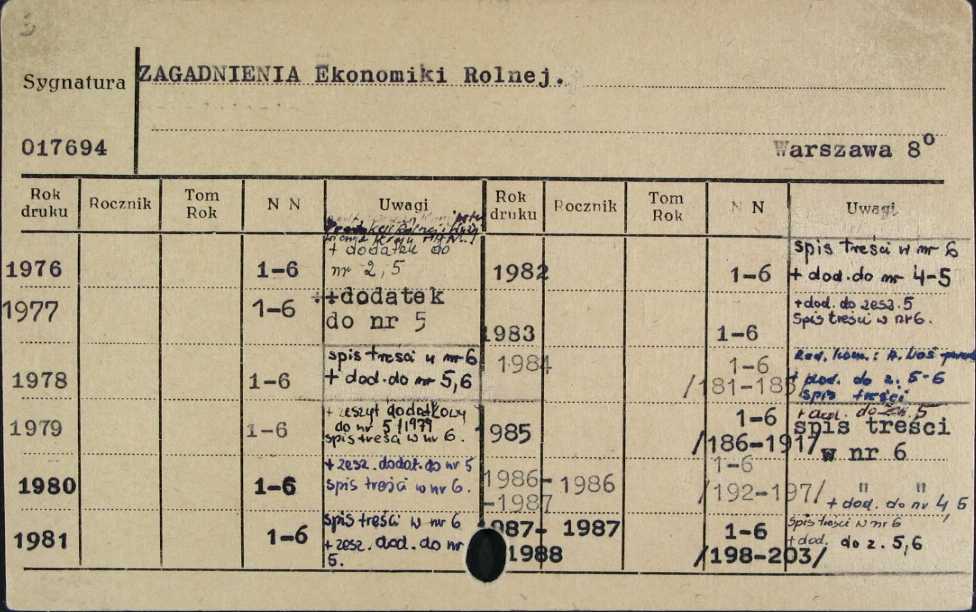 Sygnatura
ZAGADNIENIA Ekonomiki Rolnej.
017694
Warszawa 8°
Rok druku Rocznik Tom Rok N N Uwagi Rok druku Rocznik Tom Rok N N Uwagi
1976 1-6
+ dodatek do
nr 2,5
1977 1-6
+dodatek
do nr 5
1978 1-6
spis treści w nr 6
+ dod. do nr 5,6
1979 1-6
+ zeszyt dodatkowy
do nr 5/1979
spis treści w nr 6.
1980 1-6
+ zesz. dodat. do nr 5
spis treści w nr 6.
1981 1-6
spis treści w nr 6
+ zesz. dod. do nr
5.
1982 1-6
spis treści w nr 6
+ dod. do nr 4-5
1983 1-6
+ dod. do zesz. 5
Spis treści w nr 6.
1984 1-6
/181-185/
+ dod. do z. 5-6
spis treści
1985 1-6
/186-191/
+ dod. do zesz. 5
spis treści
w nr 6
1986-
-1987 1986 1-6
/192-197/
" "
+ dod. do nr 4,5
1987-
1988 1987 1-6
/198-203/
spis treści w nr 6
+ dod. do z. 5,6